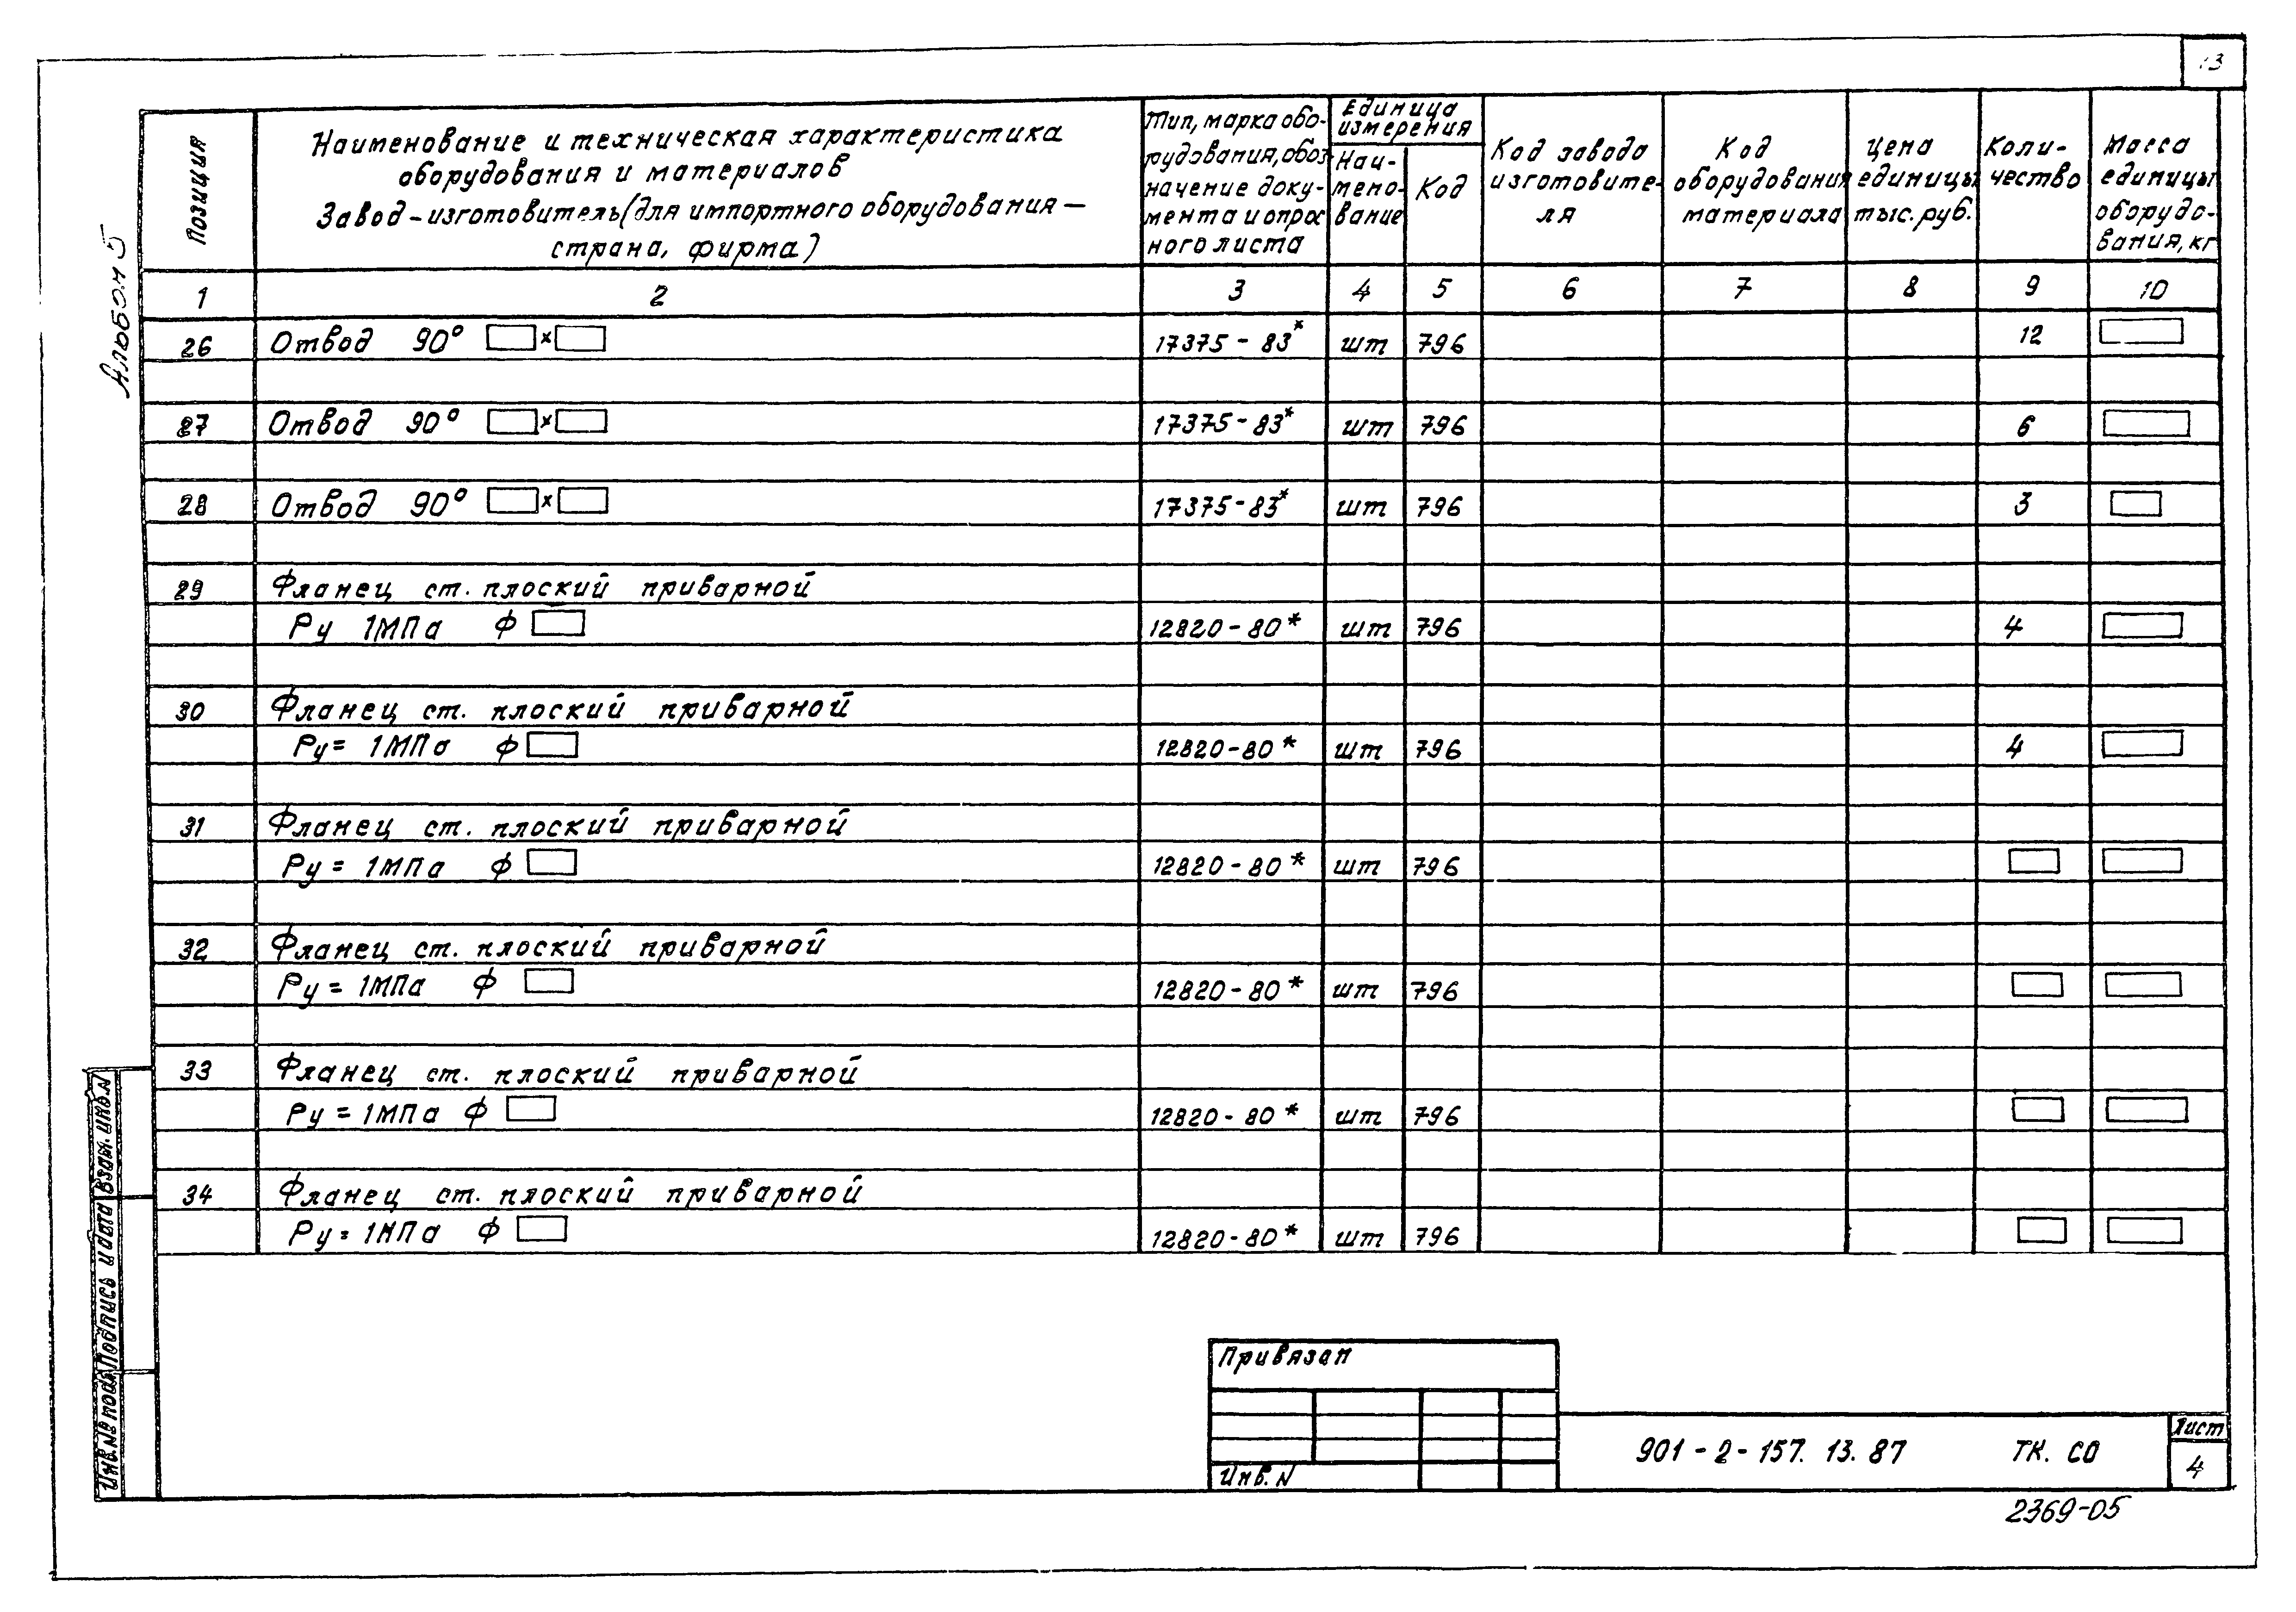 13
Альбом 5
Позиция
Наименование и техническая характеристика
оборудования и материалов
Завод-изготовитель(для импортного оборудования —
страна, фирма)
Тип, марка обо-
рудования, обоз
начение доку-
мента и опрос
ного листа
Единица
измерения
Наи-
мено-
вание
Код
Код завода
изготовите-
ля
Код
оборудования
материала
Цена
единицы
тыс. руб.
Коли-
чество
Масса
единицы
оборудо-
вания, кг
1 2 3 4 5 6 7 8 9 10
26 Отвод 90° □×□ 17375-83* шт 796 12 □
27 Отвод 90° □×□ 17375-83* шт 796 6 □
28 Отвод 90° □×□ 17375-83* шт 796 3 □
29 Фланец ст. плоский приварной
Ру 1МПа ф □ 12820-80* шт 796 4 □
30 Фланец ст. плоский приварной
Ру= 1МПа ф □ 12820-80* шт 796 4 □
31 Фланец ст. плоский приварной
Ру= 1МПа ф □ 12820-80* шт 796 □ □
32 Фланец ст. плоский приварной
Ру= 1МПа ф □ 12820-80* шт 796 □ □
33 Фланец ст. плоский приварной
Ру= 1МПа ф □ 12820-80* шт 796 □ □
34 Фланец ст. плоский приварной
Ру= 1МПа ф □ 12820-80* шт 796 □ □
Взам. инв. N
Подпись и дата
Инв. № подл
Привязан
Инв. N
901-2-157. 13. 87 ТК. СО
Лист
4
2369-05